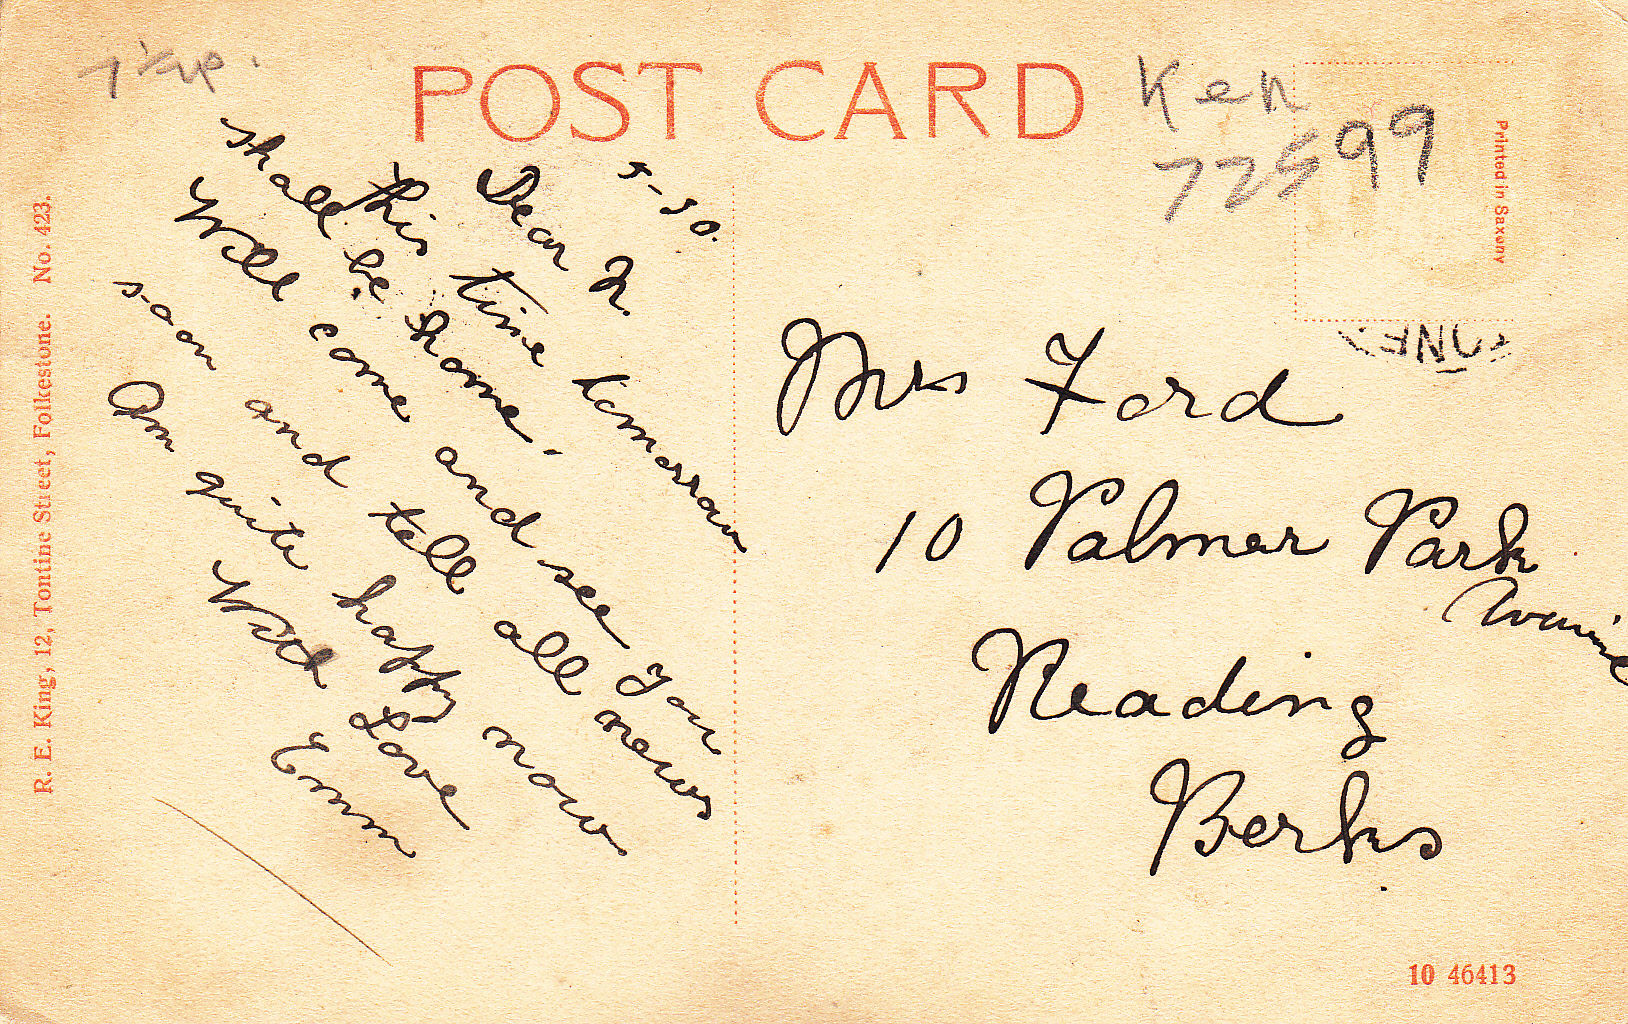 POST CARD
Ken
72599
Printed in Saxony
5-30.
Dear
this time tomorrow
shall be home.
Will come and see you
soon and tell all news
Am quite happy now
With Love
Emm
Mrs Ford
10 Palmer Park
Reading
Berks
R. E. King, 12, Tontine Street, Folkestone. No. 423.
10 46413